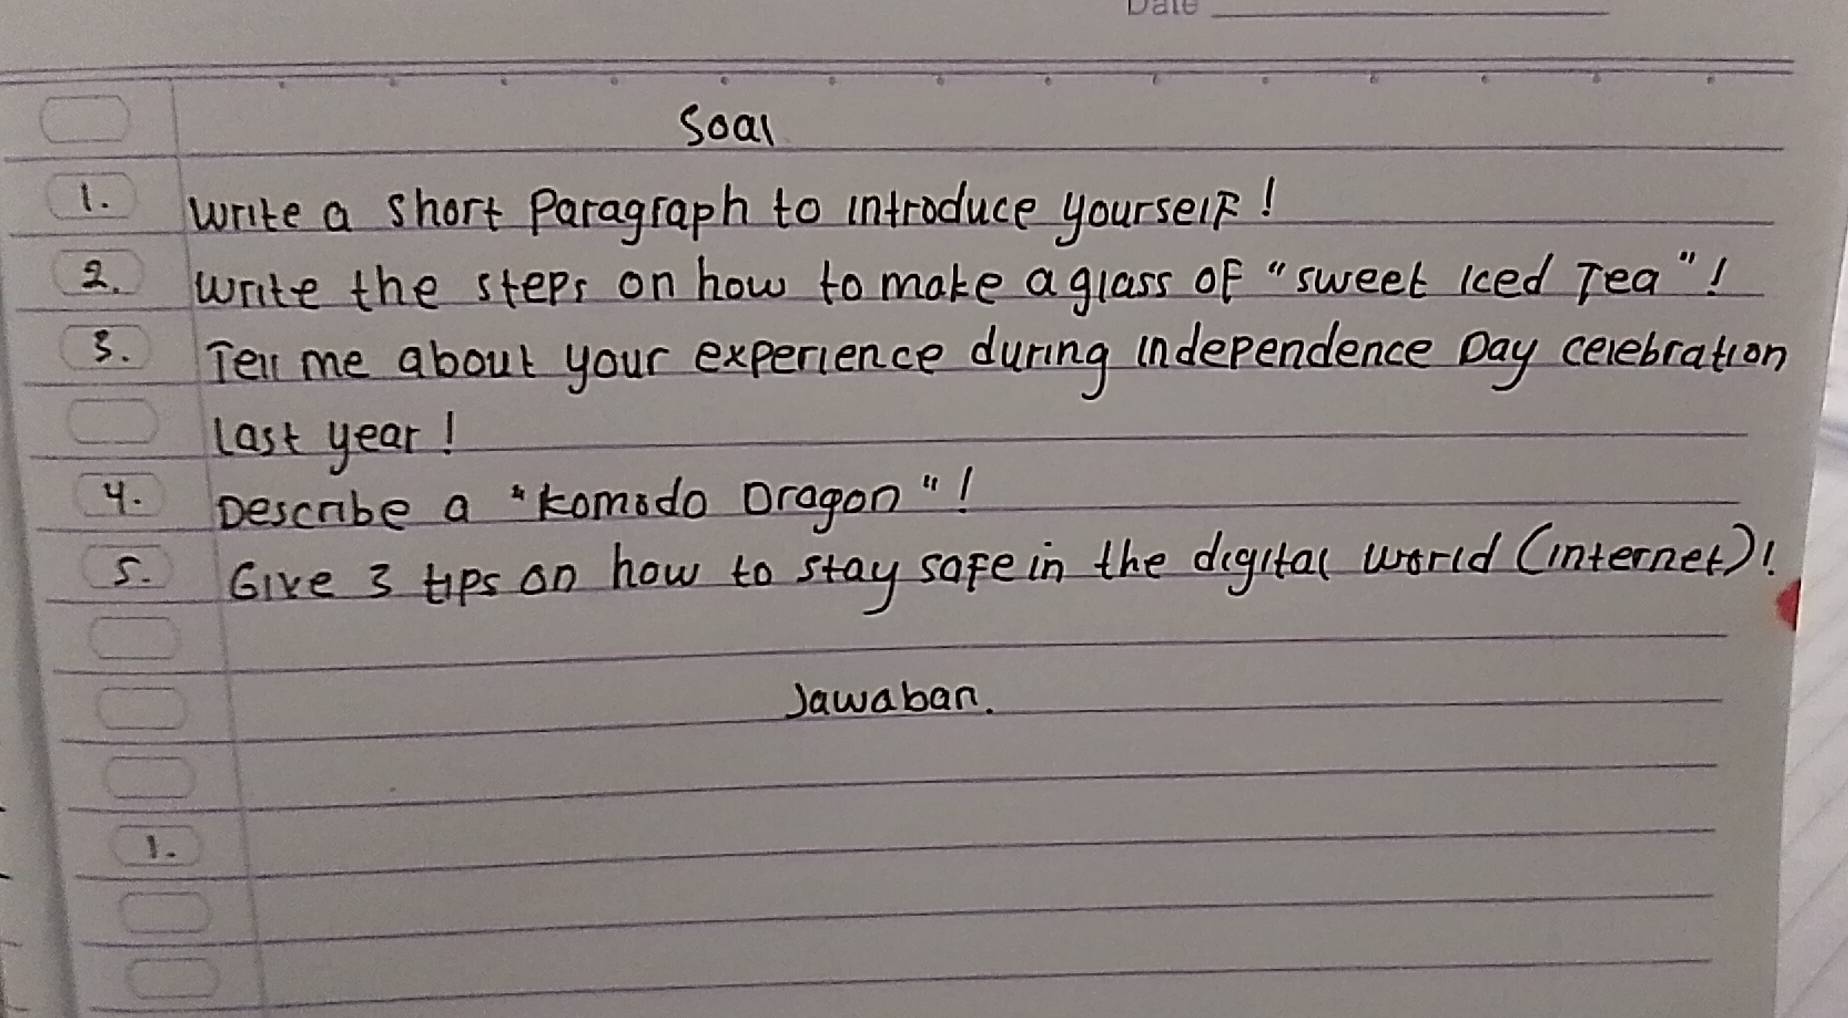 Date
Soal
1. Write a short Paragraph to introduce yourself!
2. Write the steps on how to make a glass of "sweet Iced Tea"!
3. Tell me about your experience during Independence Day celebration
last year!
4. Describe a "Komodo Dragon"!
5. Give 3 tips on how to stay safe in the digital world (internet)!
Jawaban.
1.